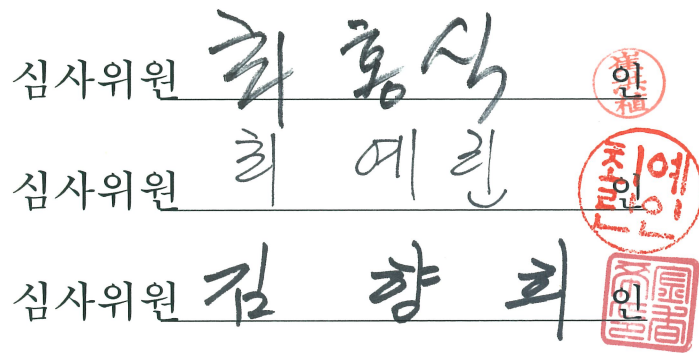 심사위원 최홍식 인
심사위원 최예린 인
심사위원 김향희 인